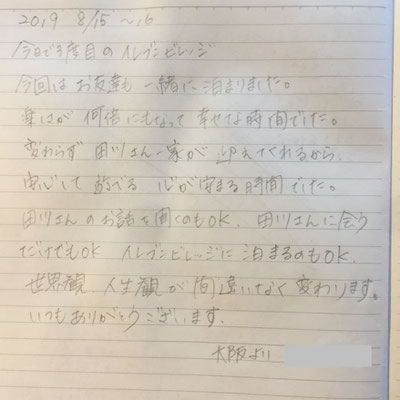 2019 8/15 ~16
今日で3度目のイレブンビレッジ
今回はお友達も一緒に泊まりました。
楽しさが何倍にもなって幸せな時間でした。
変わらず田川さん一家が迎えてくれるから、
安心して遊べる 心が安まる時間でした。
田川さんのお話を聞くのもOK、田川さんに会う
だけでもOK イレブンビレッジに泊まるのもOK、
世界観、人生観が間違いなく変わります。
いつもありがとうございます。
大阪より